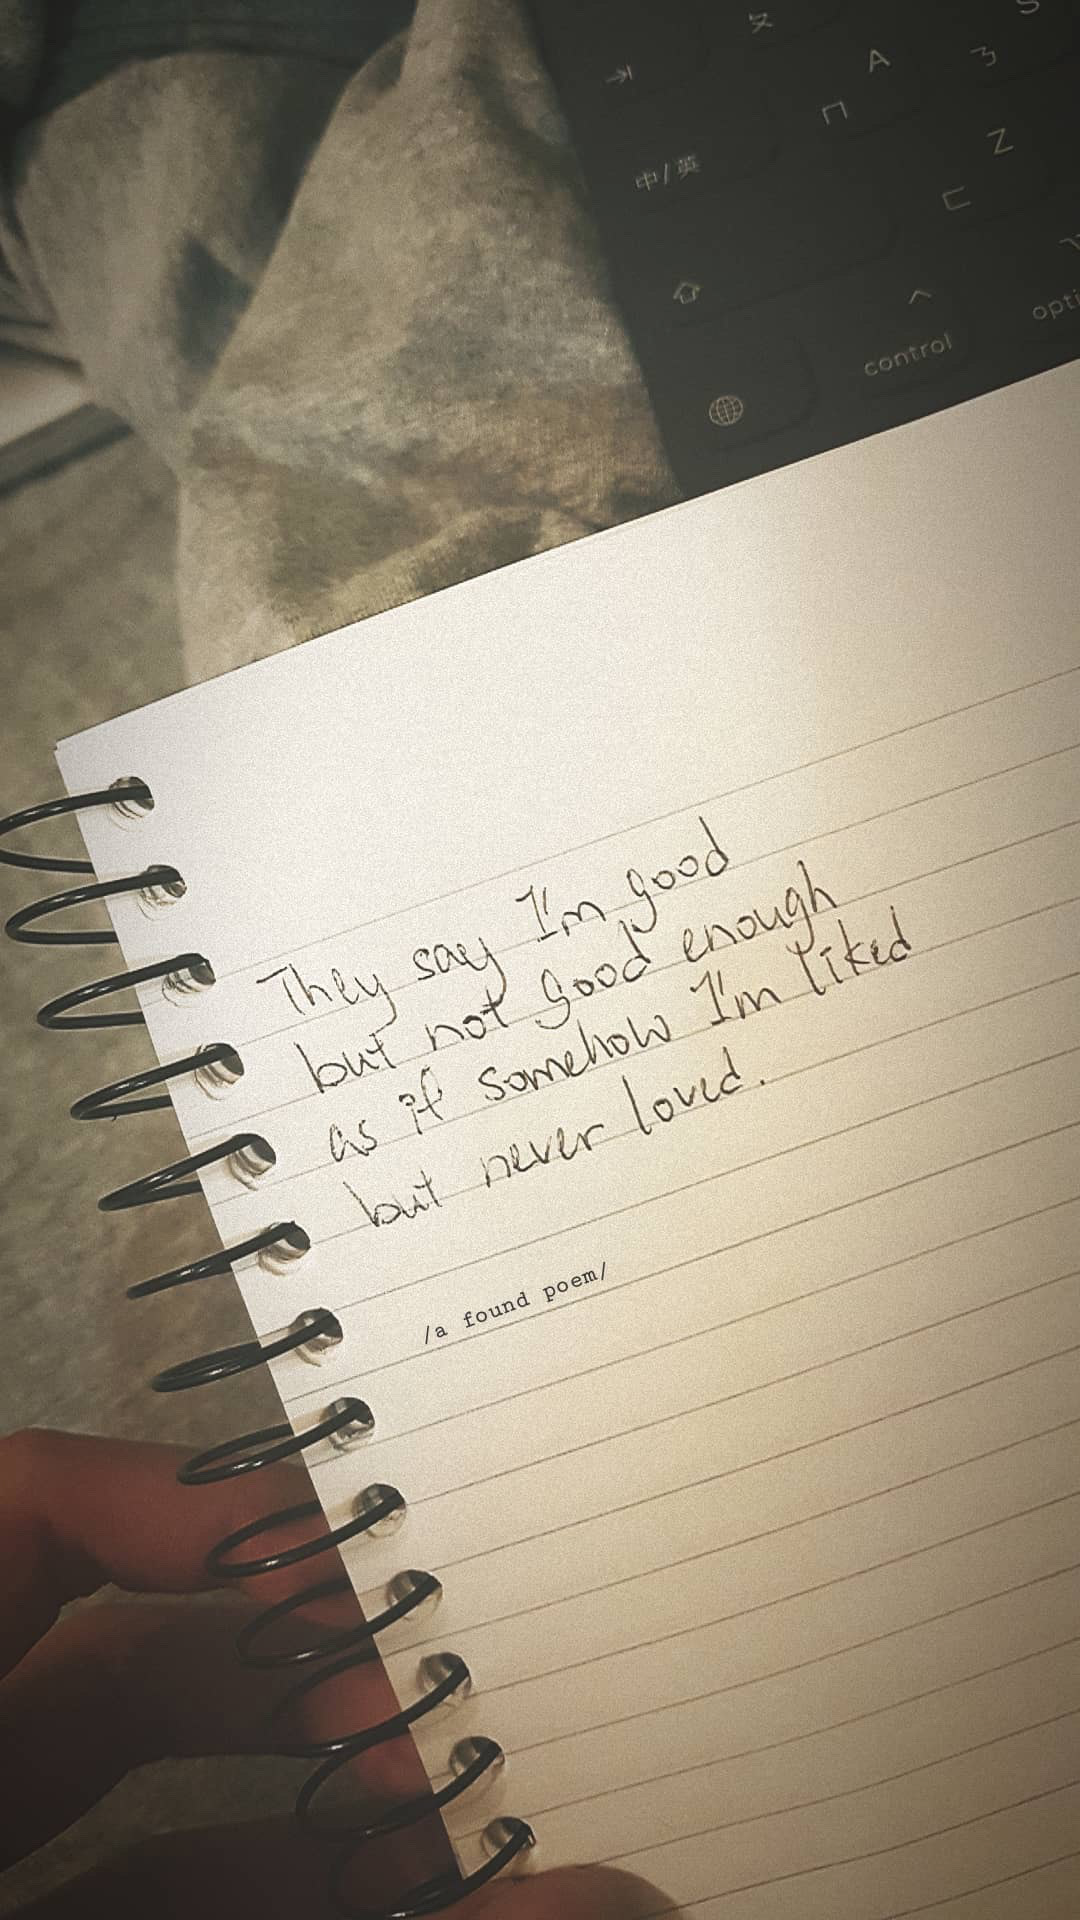 ㄆ
S
A
ㄋ
ㄇ
Z
中/英
ㄈ
control
opti
They say I'm good
but not good enough
as if somehow I'm liked
but never loved.
/a found poem/